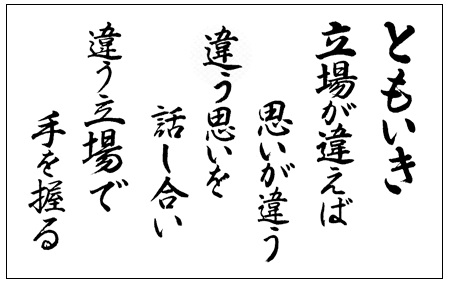 ともいき
立場が違えば
思いが違う
違う思いを
話し合い
違う立場で
手を握る